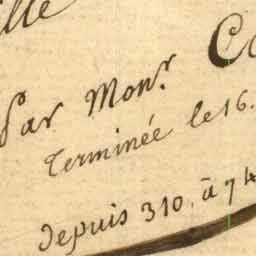 ille
Par Mon.r Co
Terminée le 16.
Depuis 310. à 74